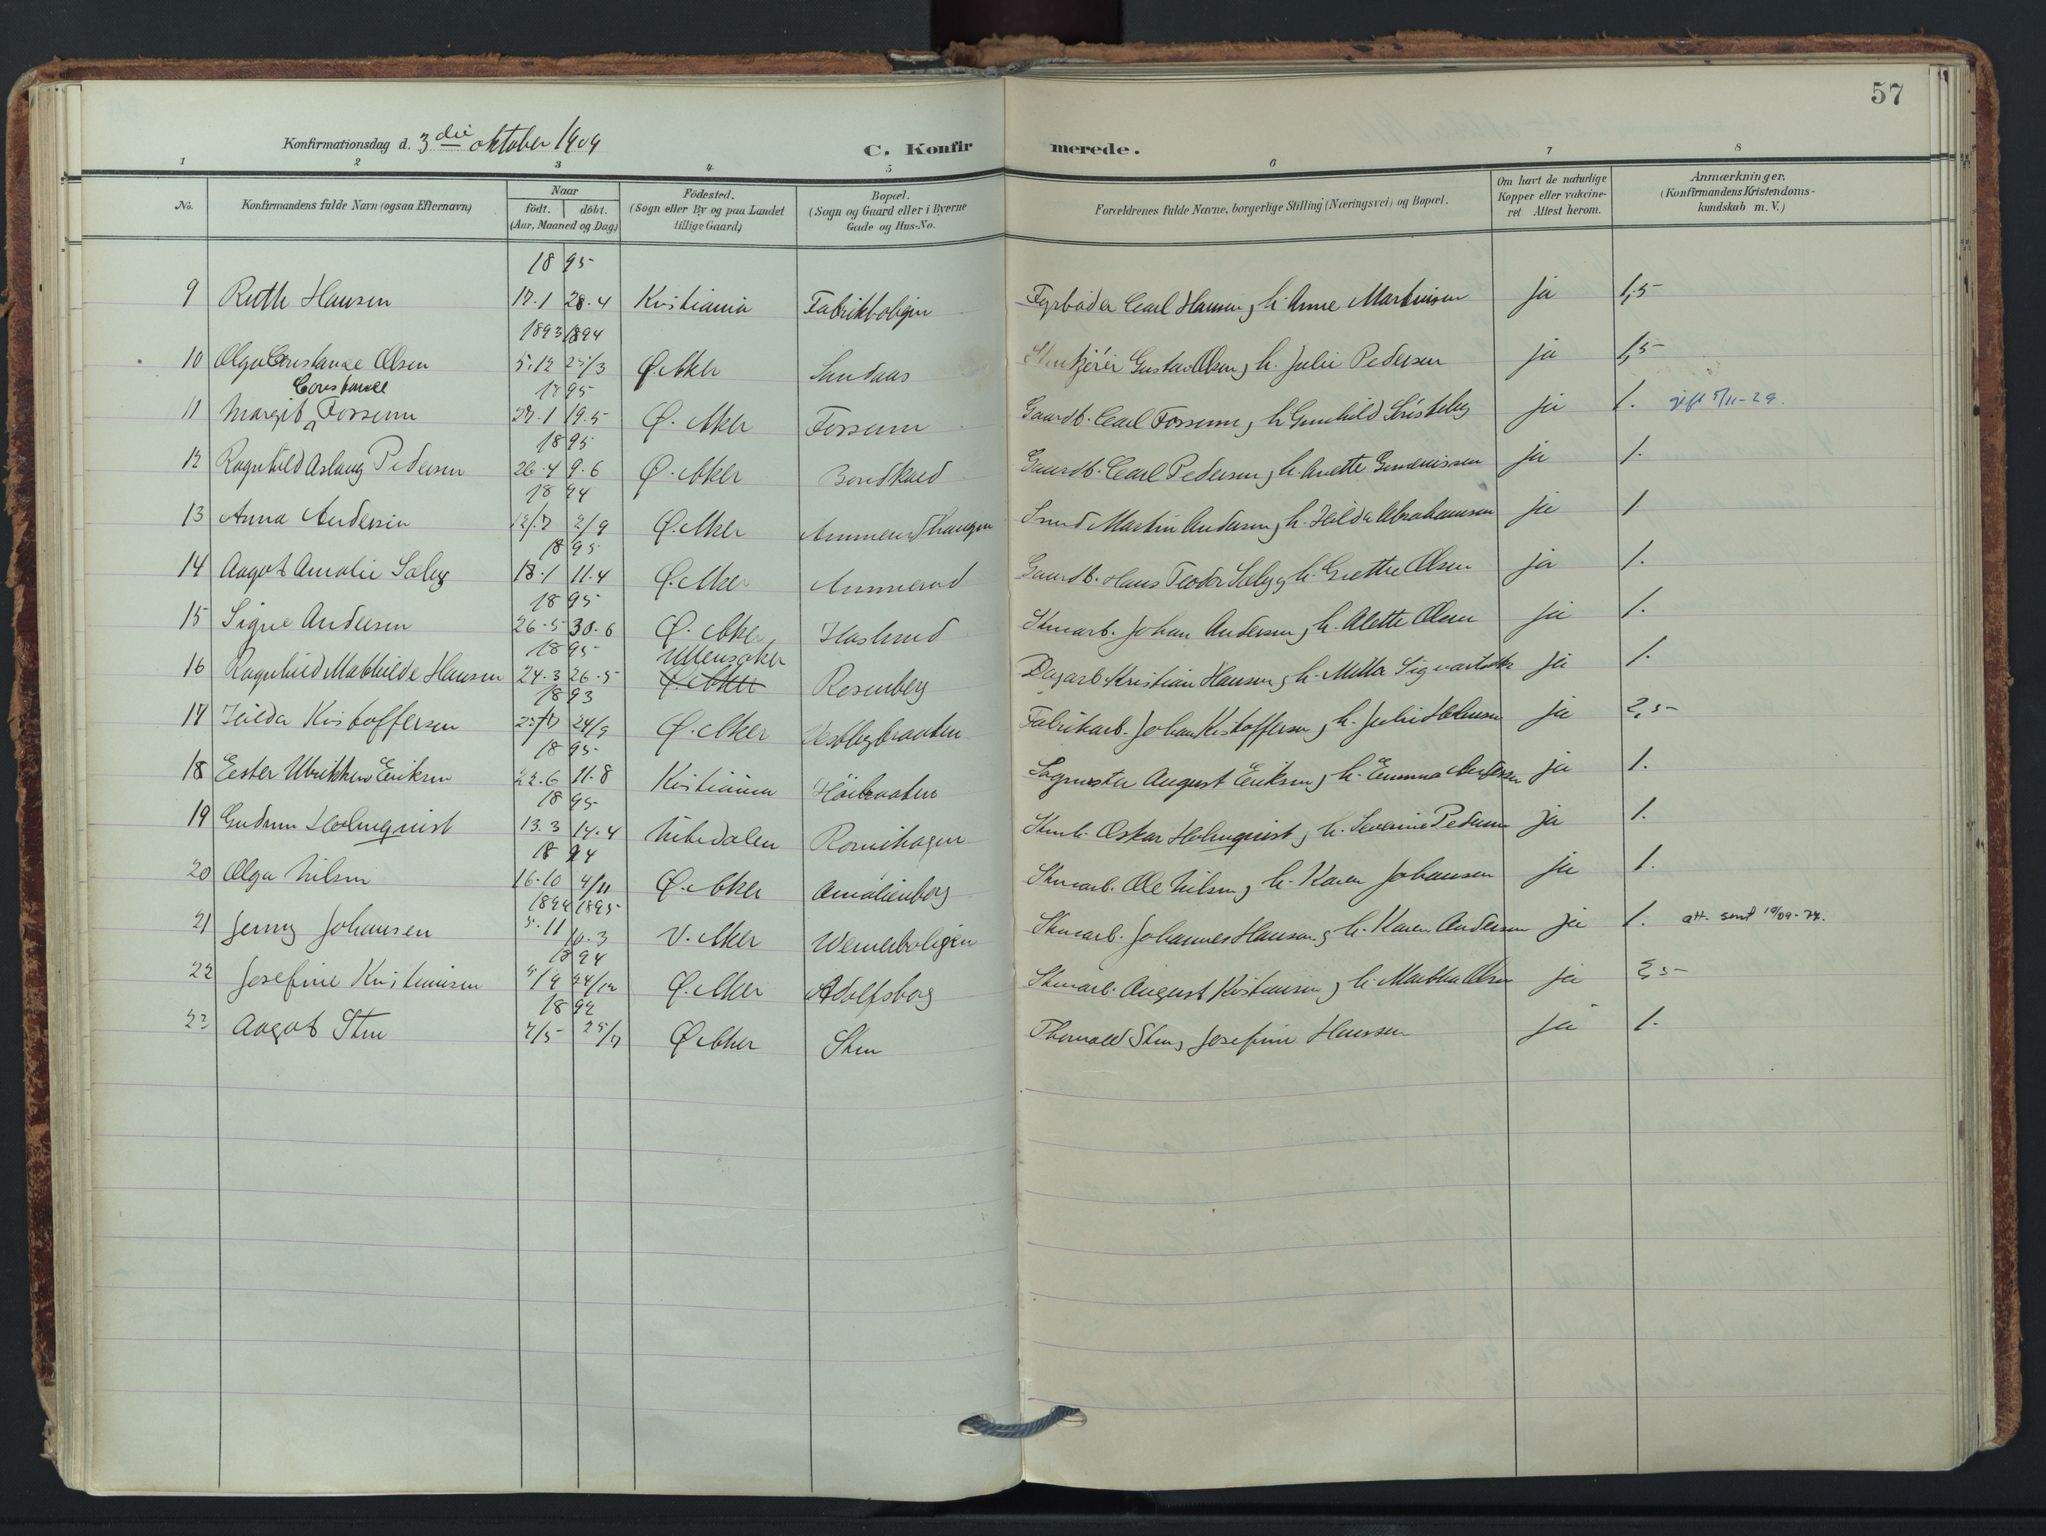 57
Konfirmationsdag d. 3die oktober 1909
C. Konfirmerede.
1 2 3 4 5 6 7 8
No. Konfirmandens fulde Navn (ogsaa Efternavn) Naar født. døbt. (Aar, Maaned og Dag) Fødested. (Sogn eller By og paa Landet tillige Gaard) Bopæl. (Sogn og Gaard eller i Byerne Gade og Hus-No. Forældrenes fulde Navne, borgerlige Stilling (Næringsvei) og Bopæl. Om havt de naturlige Kopper eller vakcineret. Attest herom. Anmærkninger. (Konfirmandens Kristendomskundskab m. V.)
1895
9 Ruth Hansen 17.1 28.4 Kristiania Fabrikboligen Fyrbøder Carl Hansen, h. Anne Martinsen ja 1,5
1893 1894
10 Olga Constance Olsen 5.12 25/3 Ø. Aker Sandaas Gustav Olsen, h. Julie Pedersen ja 1,5
Constance 1895
11 Margit Forssum 27.1 19.5 Ø. Aker Forssum Gaardb. Carl Forssum, h Gunhild ja 1. gift 5/11-29.
1895
12 Ragnhild Aslaug Pedersen 26.4 9.6 Ø. Aker Gaardb. Carl Pedersen, h. Anette ja 1.
1894
13 Anna Andersen 12/7 2/9 Ø. Aker Ammerudhaugen Smed Martin Andersen, h. Hilda Abrahamsen ja 1
1895
14 Aagot Amalie 18.1 11.4 Ø. Aker Ammerud Gaardb. Hans Teodor h. Grethe Olsen ja 1.
1895
15 Signe Andersen 26.5 30.6 Ø. Aker Haslerud Stenarb. Johan Andersen, h. Alette Olsen ja 1.
1895 Ullensaker
16 Ragnhild Mathilde Hansen 24.3 26.5 Ø. Aker Rosenberg Dagarb. Kristian Hansen, h. Milla ja 1.
1893
17 Hilda Kristoffersen 25/7 24/9 Ø. Aker Vestbybraaten Fabrikarb. Johan Kristoffersen, h. Julie ja 2,5
1895
18 Ester Eriksen 22.6 11.8 Kristiania Høibraaten Sagmester August Eriksen, h. Emma Andersen ja 1.
1895
19 Gudrun Holmquist 13.3 14.4 Nitedalen Romihagen Stenh. Oskar Holmquist, h. Severine Pedersen ja 1.
1894
20 Olga Nilsen 16.10 4/11 Ø. Aker Amalienborg Stenarb. Ole Nilsen, h. Karen Johansen ja 1.
1894 1895
21 Jenny Johansen 5.11 10.3 V. Aker Wernerboligen Stenarb. Johannes Hanson, h. Karen Andersen ja 1. att. sent 19/09-74.
1894
22 Josefine Kristiansen 9/9 24/12 Ø. Aker Adolfsborg Stenarb. August Kristiansen, h. Martha Olsen ja 2,5
1894
23 Aagot Sten 7/5 25/7 Ø. Aker Sten Thorvald Sten, Josefine Hanssen ja 1.